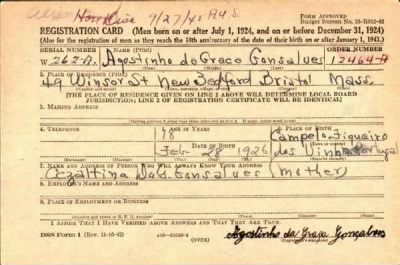 9/27/45
FORM APPROVED
REGISTRATION CARD (Men born on or after July 1, 1924, and on or before December 31, 1924)
(Also for the registration of men as they reach the 18th anniversary of the date of their birth on or after January 1, 1943.)
SERIAL NUMBER 1. NAME (Print) ORDER NUMBER
262-A Agostinho da Graca Gonsalves 12464-A
2. PLACE OF RESIDENCE (Print)
49 Winsor St New Bedford Bristol Mass.
[THE PLACE OF RESIDENCE GIVEN ON LINE 2 ABOVE WILL DETERMINE LOCAL BOARD
JURISDICTION; LINE 2 OF REGISTRATION CERTIFICATE WILL BE IDENTICAL]
3. MAILING ADDRESS
4. TELEPHONE 18 AGE IN YEARS PLACE OF BIRTH
DATE OF BIRTH Campelo Figueiro
Feb 28 1926 dos Vinhos Portugal
7. NAME AND ADDRESS OF PERSON WHO WILL ALWAYS KNOW YOUR ADDRESS
Gonsalves (mother)
8. EMPLOYER'S NAME AND ADDRESS
9. PLACE OF EMPLOYMENT OR BUSINESS
I AFFIRM THAT I HAVE VERIFIED ABOVE ANSWERS AND THAT THEY ARE TRUE.
DSS FORM 1 (Rev. 11-16-42) (OVER) Agostinho da Graça Gonçalves